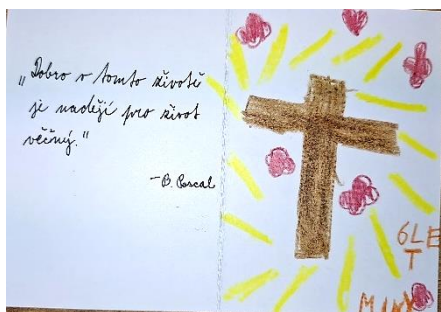 „Dobro v tomto životě
je nadějí pro život
věčný."
-B. Pascal
6LET
MINY